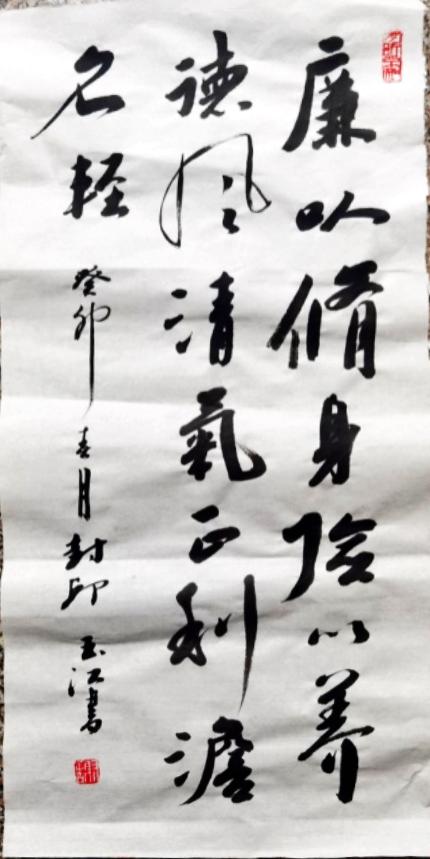 廉以脩身险以養
德風清氣正利澹
名軽
癸卯春月封印玉江書